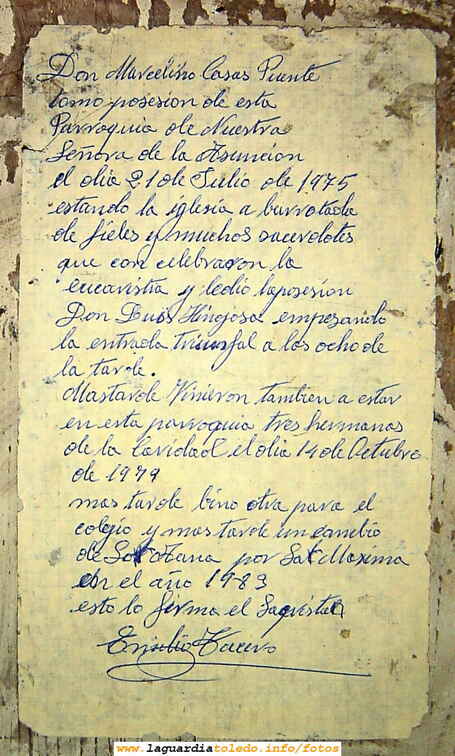 Don Marcelino Casas Puente
tomo posesion de esta
Parroquia de Nuestra
Señora de la Asuncion
el dia 21 de Julio de 1975
estando la iglesia a barrotada
de fieles y muchos sacerdotes
que con celebraron la
eucaristia y ledio laposesion
Don Luis Hinojosa empezando
la entrada triunfal a las ocho de
la tarde.
Mastarde Vinieron tambien a estar
en esta parroquia tres hermanas
de la Caridad el dia 14 de Octubre
de 1979
mas tarde bino otra para el
colegio y mas tarde un cambio
de Sor Ana por Sor Maxima
en el año 1983
esto lo firma el Saqristan
Emilio
www.laguardiatoledo.info/fotos